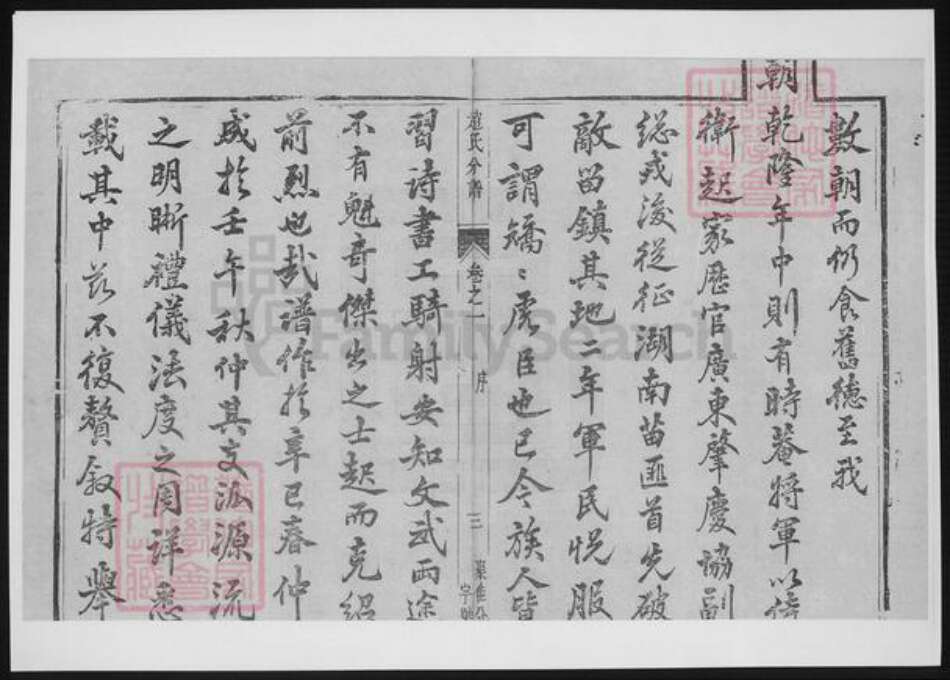 數朝而仍食舊德至我
朝乾隆年中則有時菴將軍以侍
衛起家歷官廣東肇慶協副
總戎後從征湖南苗匪首先破
敵留鎮其地二年軍民悅服
可謂矯〻虎臣也已今族人皆
范氏分譜 卷之一 序 三
習詩書工騎射安知文武兩途
不有魁奇傑出之士起而克紹
前烈也哉譜作於辛巳春仲
成於壬午秋仲其支派源流
之明晰禮儀法度之周詳悉
載其中茲不復贅敘特舉
FamilySearch